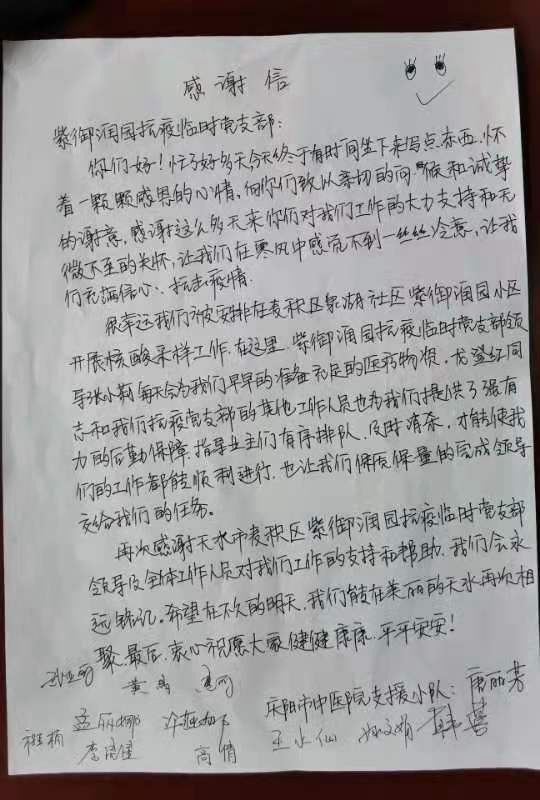 感谢信
紫御润园抗疫临时党支部:
你们好!忙了好多天今天终于有时间坐下来写点东西,怀
着一颗颗感恩的心情,向你们致以亲切的问候和诚挚
的谢意,感谢这么多天来你们对我们工作的大力支持和无
微不至的关怀,让我们在寒风中感觉不到一丝丝冷意,让我
们充满信心,抗击疫情.
很幸运我们被安排在麦积区泉湖社区紫御润园小区
开展核酸采样工作,在这里,紫御润园抗疫临时党支部领
导张小莉每天会为我们早早的准备充足的医疗物资,龙登红同
志和我们抗疫党支部的其他工作人员也为我们提供了强有
力的后勤保障,指导业主们有序排队,及时消杀,才能使我
们的工作都能顺利进行,也让我们保质保量的完成领导
交给我们的任务。
再次感谢天水市麦积区紫御润园抗疫临时党支部
领导及全体工作人员对我们工作的支持和帮助,我们会永
远铭记。希望在不久的明天,我们能在美丽的天水再次相
聚,最后,衷心祝愿大家健健康康,平平安安!
庆阳市中医院支援小队: 唐丽芳
高倩